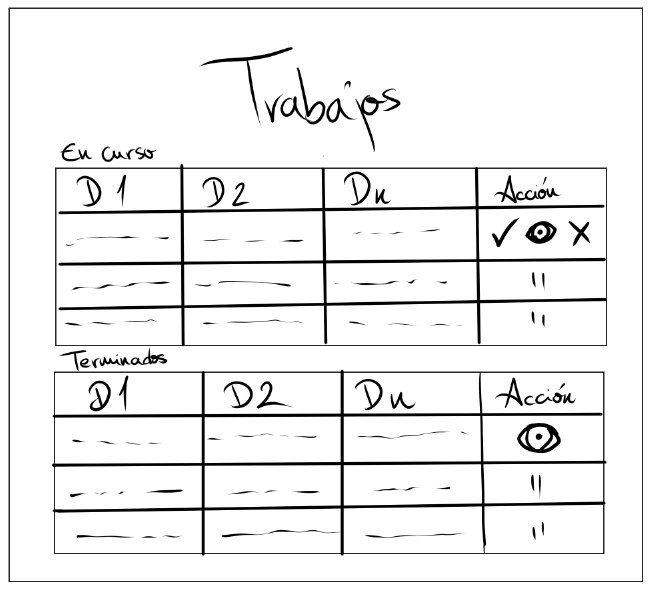 Trabajos
En curso
D1 D2 Dn Acción
✓ X
"
"
Terminados
D1 D2 Dn Acción
"
"